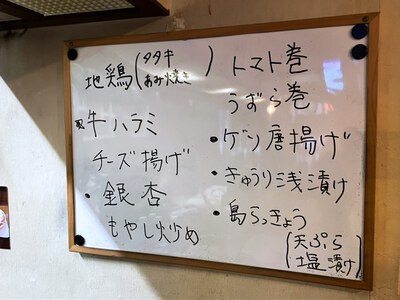 地鶏(タタキ
あみ焼き)
牛ハラミ
チーズ揚げ
・銀杏
もやし炒め
トマト巻
うずら巻
・ゲソ唐揚げ
・きゅうり浅漬け
・島らっきょう
(天ぷら
塩漬け)